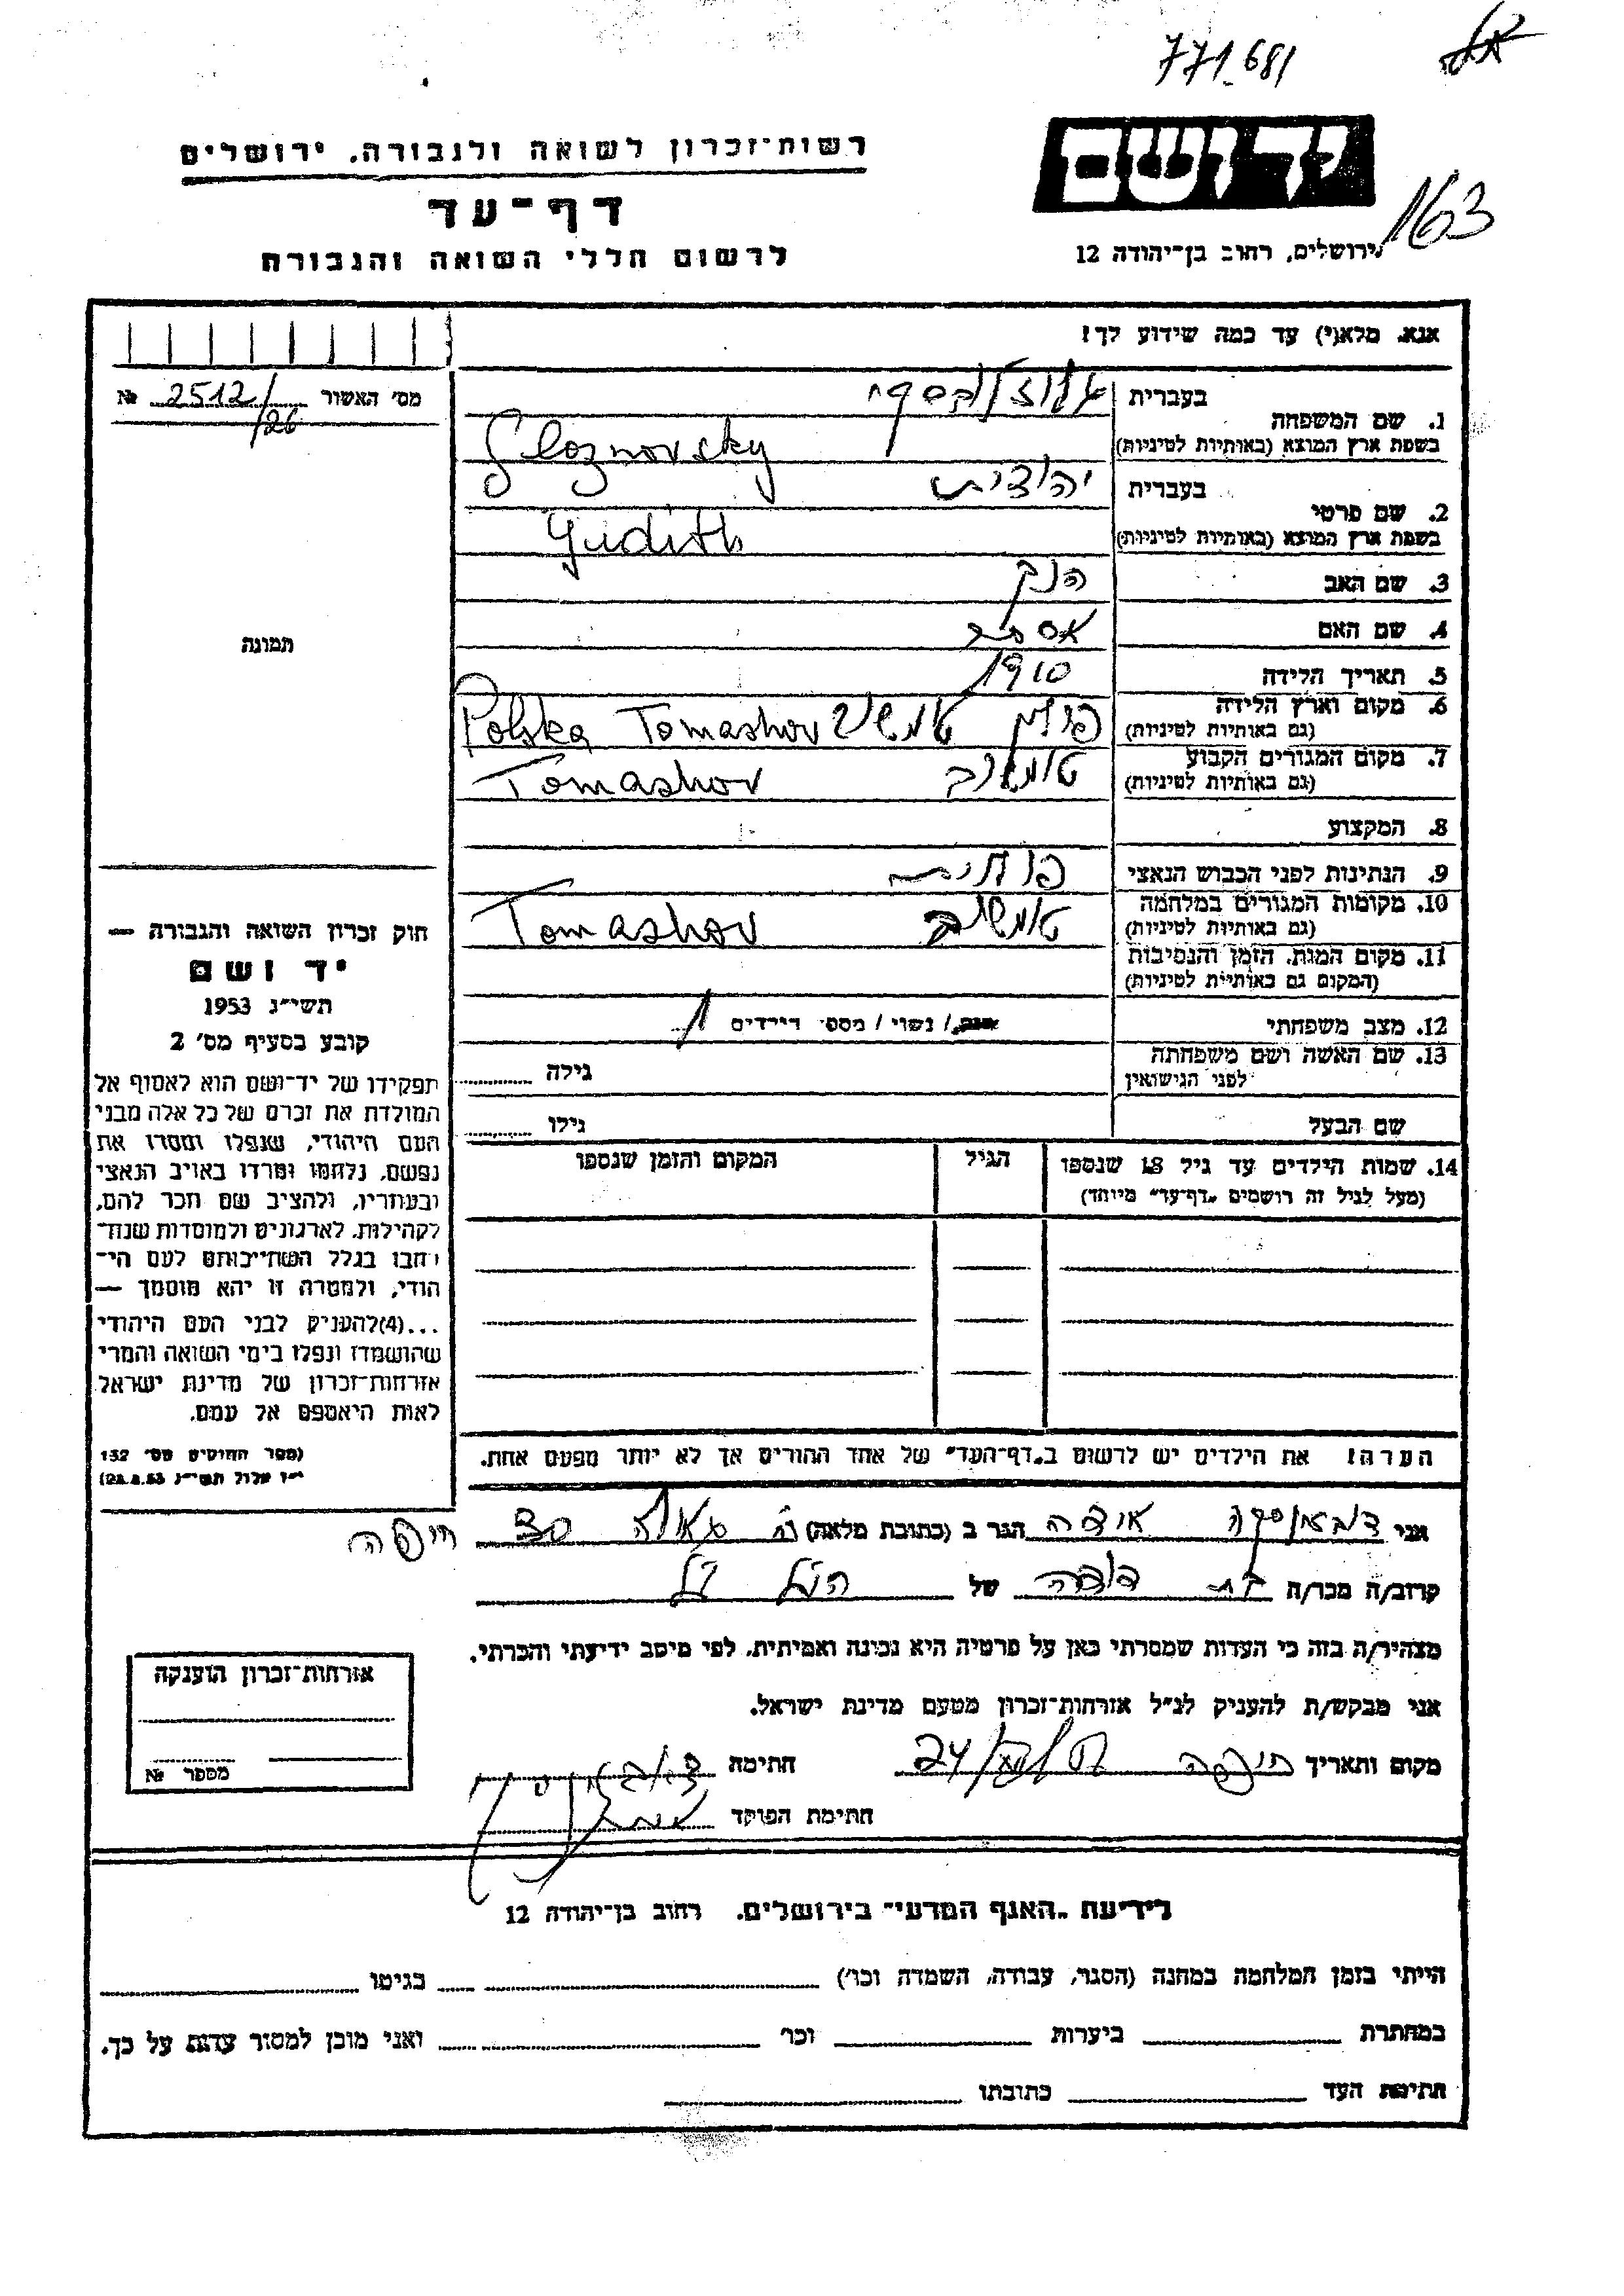 771_681
יד ושם
163
רשות־זכרון לשואה ולגבורה, ירושלים
דף־עד
לרשום חללי השואה והגבורה
ירושלים, רחוב בן־יהודה 12
אנא, מלא(י) עד כמה שידוע לך!
מס׳ האשור 2512/26 №
תמונה
1. שם המשפחה
בעברית
בשפת ארץ המוצא (באותיות לטיניות) Gloznovsky
2. שם פרטי
בעברית יהודית
בשפת ארץ המוצא (באותיות לטיניות) Yudith
3. שם האב
4. שם האם אסתר
5. תאריך הלידה 1910
6. מקום וארץ הלידה
(גם באותיות לטיניות) פולין טומשוב Polska Tomashov
7. מקום המגורים הקבוע
(גם באותיות לטיניות) טומשוב Tomashov
8. המקצוע
9. הנתינות לפני הכבוש הנאצי פולנית
10. מקומות המגורים במלחמה
(גם באותיות לטיניות) טומשוב Tomashov
11. מקום המות, הזמן והנסיבות
(המקום גם באותיות לטיניות)
12. מצב משפחתי רווק/ נשוי / מספר הילדים
13. שם האשה ושם משפחתה
לפני הנישואין
גילה
שם הבעל
גילו
14. שמות הילדים עד גיל 18 שנספו
(מעל לגיל זה רושמים „דף־עד” מיוחד)
הגיל
המקום והזמן שנספו
הערה! את הילדים יש לרשום ב„דף־העד” של אחד ההורים אך לא יותר מפעם אחת.
חוק זכרון השואה והגבורה —
יד ושם
תשי״ג 1953
קובע בסעיף מס׳ 2
תפקידו של יד־ושם הוא לאסוף אל
המולדת את זכרם של כל אלה מבני
העם היהודי, שנפלו ומסרו את
נפשם, נלחמו ומרדו באויב הנאצי
ובעוזריו, ולהציב שם וזכר להם,
לקהילות, לארגונים ולמוסדות שנח־
רבו בגלל השתייכותם לעם הי־
הודי, ולמטרה זו יהא מוסמך —
...(4)להעניק לבני העם היהודי
שהושמדו ונפלו בימי השואה והמרי
אזרחות־זכרון של מדינת ישראל
לאות היאספם אל עמם.
(ספר החוקים מס׳ 132
י״ז אלול תשי״ג 28.8.53)
אני הגר ב (כתובת מלאה) חיפה
קרוב/ה מכר/ה בת דודה של הנ״ל
מצהיר/ה בזה כי העדות שמסרתי כאן על פרטיה היא נכונה ואמיתית, לפי מיטב ידיעתי והכרתי.
אני מבקש/ת להעניק לנ״ל אזרחות־זכרון מטעם מדינת ישראל.
מקום ותאריך חיפה
חתימה
חתימת הפוקד
אזרחות־זכרון הוענקה
מספר №
לידיעת „האגף המדעי” בירושלים, רחוב בן־יהודה 12
הייתי בזמן המלחמה במחנה (הסגר, עבודה, השמדה וכו׳) בגיטו
במחתרת ביערות וכו׳ ואני מוכן למסור עדות על כך.
חתימת העד כתובתו